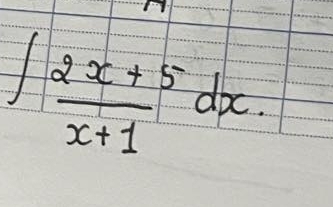 ∫ (2x + 5)/(x + 1) dx.